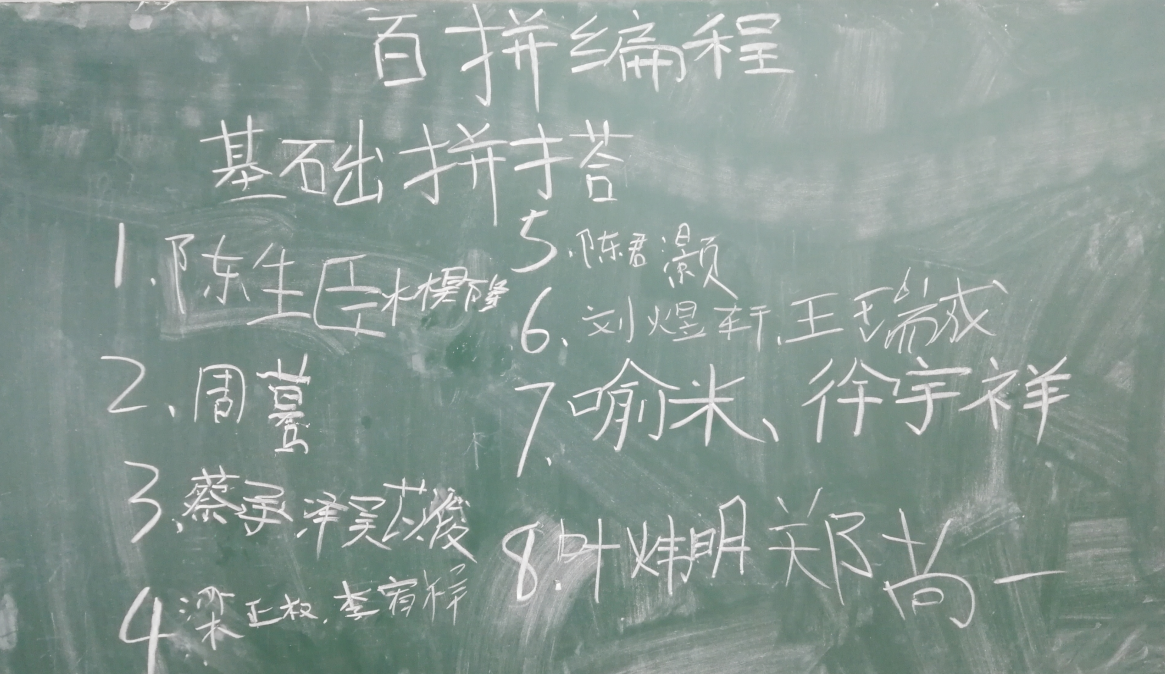 百拼编程
基础拼搭
1.陈生臣 林模
2、周
3、蔡承泽 吴
4.梁正权.李宥祥
5.陈君灏
6、刘煜轩.王瑞成
7.喻米、徐宇祥
8.叶炜明 郑尚一